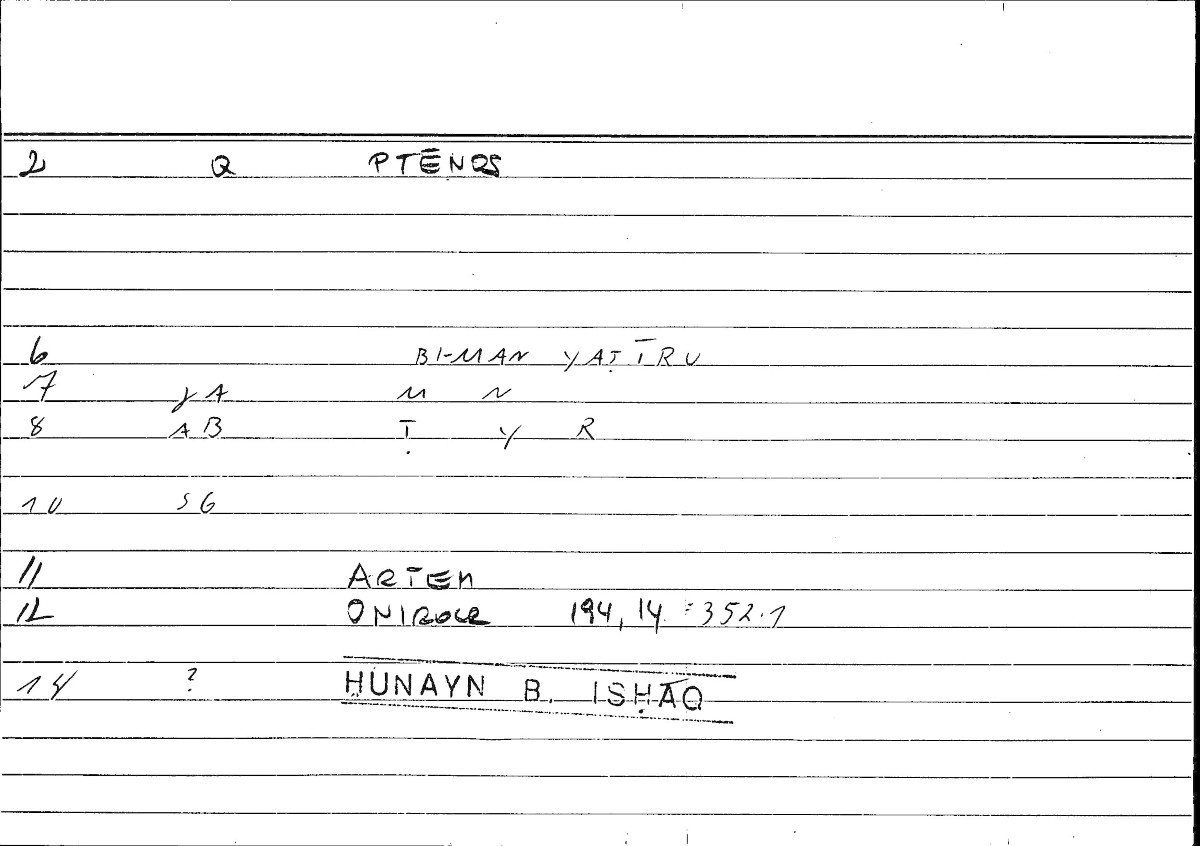 2 Q PTĒNOS
6 BI-MAN YAṬĪRU
7 JA M N
8 AB Ṭ Y R
10 SG
11 ARTEM
12 ONIROCR 194, 14 = 352.1
14 ? ḤUNAYN B. ISḤĀQ